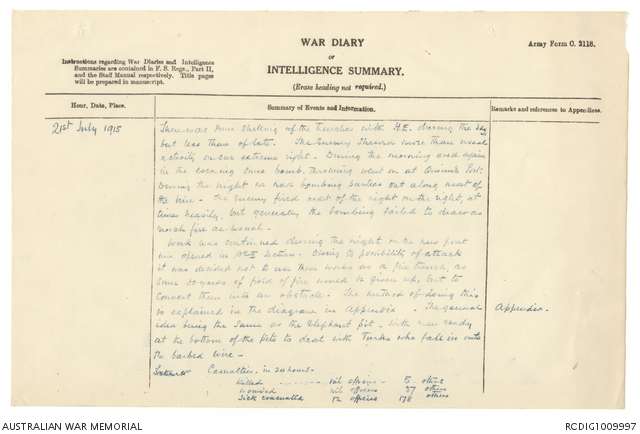 WAR DIARY
OR
INTELLIGENCE SUMMARY.
(Erase heading not required.)
Army Form C. 2118.
Instructions regarding War Diaries and Intelligence
Summaries are contained in F. S. Regs., Part II,
and the Staff Manual respectively. Title pages
will be prepared in manuscript.
Hour, Date, Place.
Summary of Events and Information.
Remarks and references to Appendices.
21st July 1915
There was some shelling of the trenches with H.E. during the day
but less than of late. The Enemy shewed more than usual
activity on our extreme right. During the morning and again
in the evening some bomb throwing went on at Post.
During the night we had bombing parties out along most of
the line. The Enemy fired most of the night on the right, at
times heavily, but generally the bombing failed to draw as
much fire as usual.
Work was continued during the night on the new front
line opened in Section. Owing to possibility of attack
it was decided not to use these works as a fire trench, as
some yards of field of fire would be given up, but to
convert them into an obstacle. The method of doing this
is explained in the diagram in Appendix. The general
idea being the same as the Elephant pit, with men ready
at the bottom of the pits to deal with Turks who fall in onto
the barbed wire.
Appendix.
Casualties in 24 hours.
Killed nil officers 5 others
Wounded nil officers 27 others
Sick evacuated 12 officers 178 others
AUSTRALIAN WAR MEMORIAL
RCDIG1009997